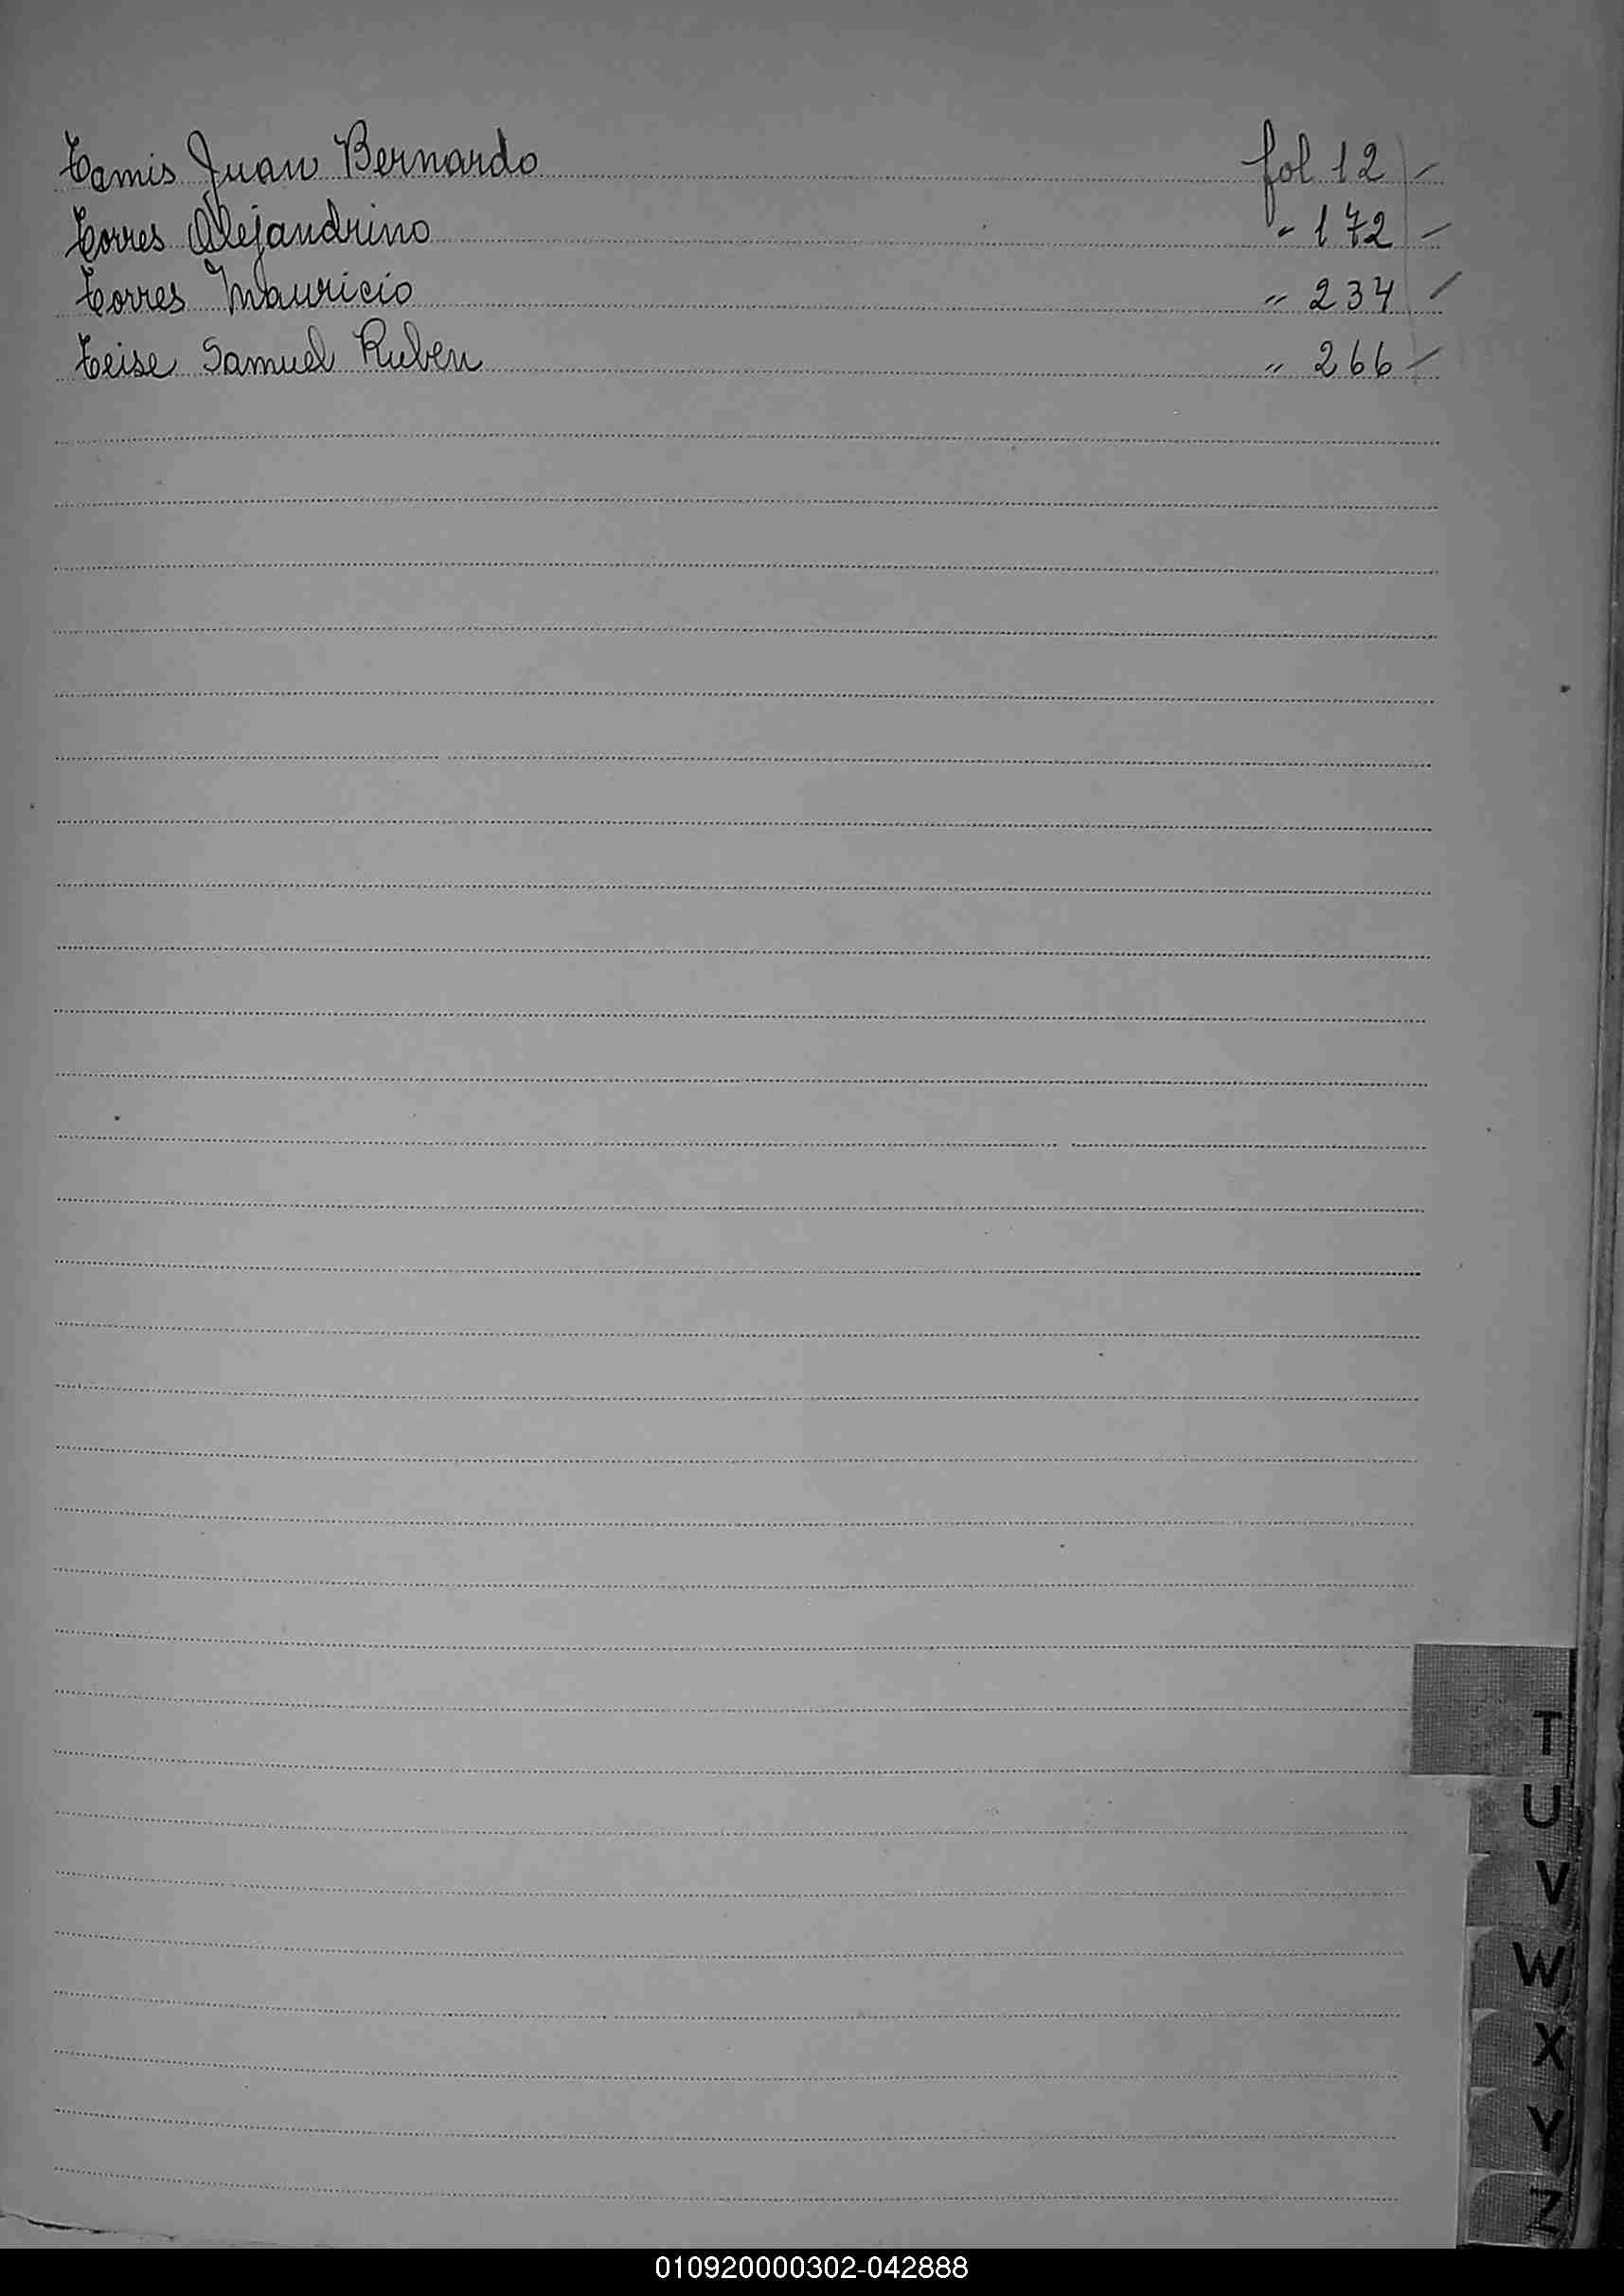 Tamis Juan Bernardo fol 12
Torres Alejandrino " 172
Torres Mauricio " 234
Teise Samuel Ruben " 266
T
U
V
W
X
Y
Z
010920000302-042888